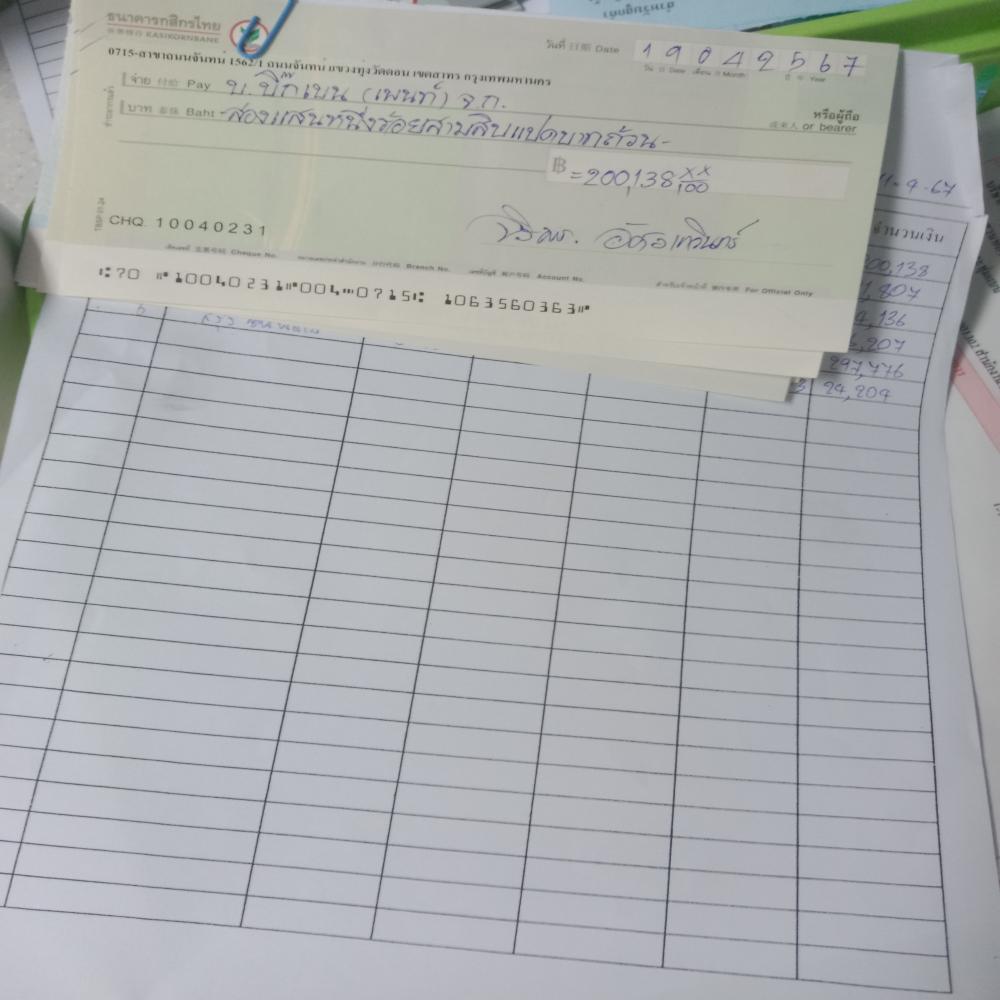 ธนาคารกสิกรไทย
KASIKORNBANK
วันที่ 日期 Date 19042567
0715-สาขาถนนจันทน์ 1562/1 ถนนจันทน์ แขวงทุ่งวัดดอน เขตสาทร กรุงเทพมหานคร
จ่าย 付给 Pay บ.บิ๊กเบน (เพนท์) จก.
หรือผู้ถือ
或来人 or bearer
บาท 泰珠 Baht -สองแสนหนึ่งร้อยสามสิบแปดบาทถ้วน-
฿ =200,138 XX/100
CHQ. 10040231
Cheque No. Branch No. Account No. For Official Only
⑆70 ⑈10040231⑈004⑉0715⑆ 1063560363⑈
11-4-67
จำนวนเงิน
00,138
,807
,136
,207
297,776
24,204